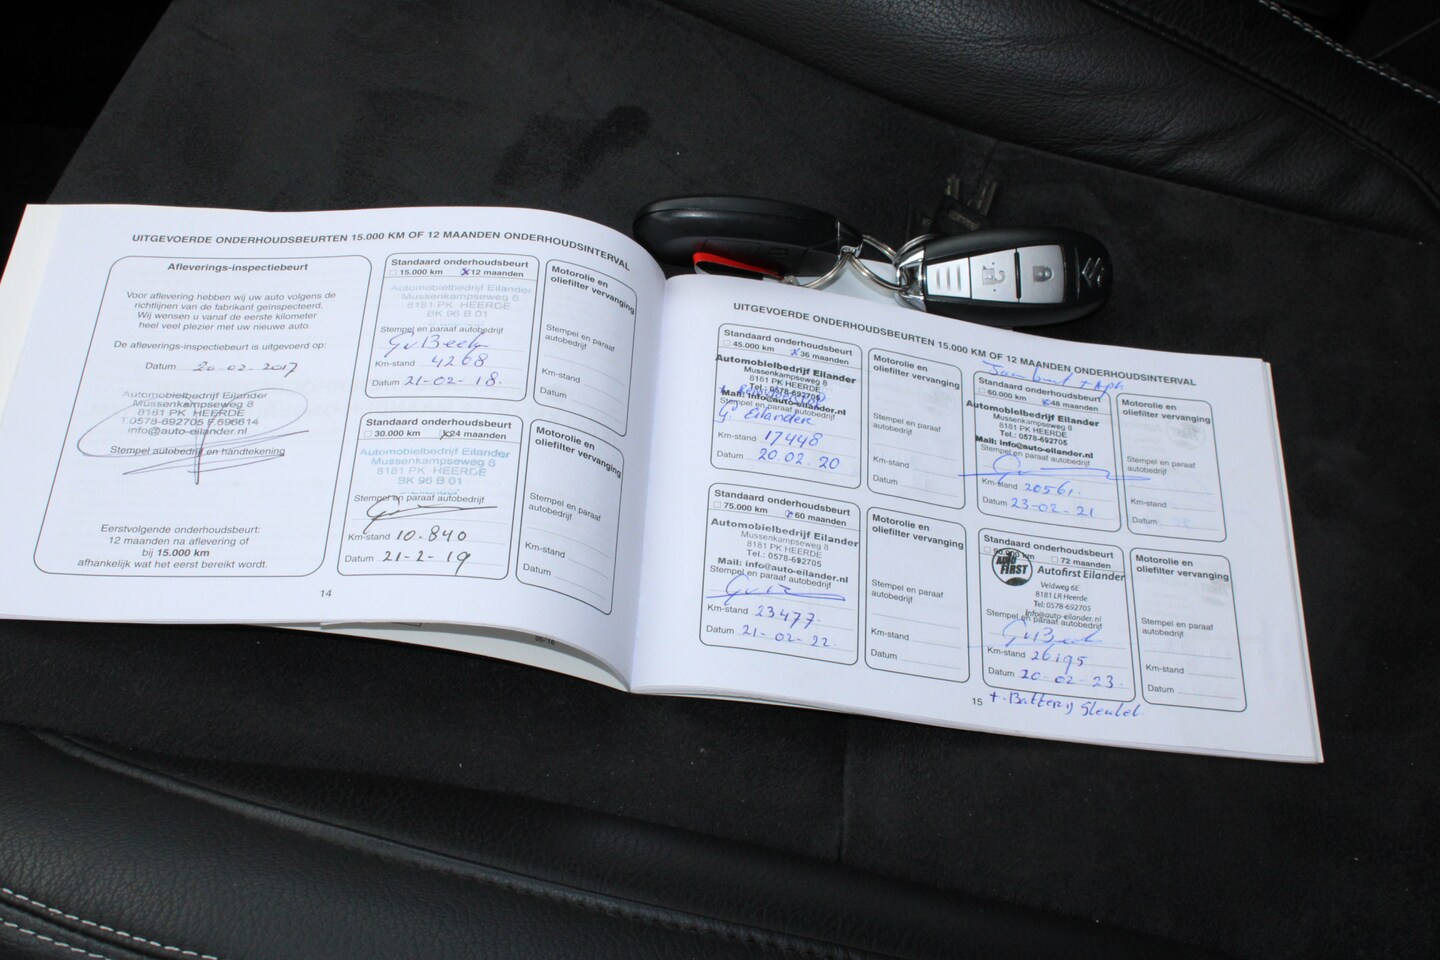 UITGEVOERDE ONDERHOUDSBEURTEN 15.000 KM OF 12 MAANDEN ONDERHOUDSINTERVAL
Afleverings-inspectiebeurt
Voor aflevering hebben wij uw auto volgens de
richtlijnen van de fabrikant geïnspecteerd.
Wij wensen u vanaf de eerste kilometer
heel veel plezier met uw nieuwe auto.
De afleverings-inspectiebeurt is uitgevoerd op:
Datum 20-02-2017
Automobielbedrijf Eilander
Mussenkampseweg 8
8181 PK HEERDE
T.0578-692705 F.696614
info@auto-eilander.nl
Stempel autobedrijf en handtekening
Eerstvolgende onderhoudsbeurt:
12 maanden na aflevering of
bij 15.000 km
afhankelijk wat het eerst bereikt wordt.
Standaard onderhoudsbeurt
15.000 km x 12 maanden
Automobielbedrijf Eilander
Mussenkampseweg 8
8181 PK HEERDE
BK 96 B 01
Stempel en paraaf autobedrijf
Km-stand 4268
Datum 21-02-18.
Motorolie en
oliefilter vervanging
Stempel en paraaf
autobedrijf
Km-stand
Datum
Standaard onderhoudsbeurt
30.000 km x 24 maanden
Automobielbedrijf Eilander
Mussenkampseweg 8
8181 PK HEERDE
BK 96 B 01
Stempel en paraaf autobedrijf
Km-stand 10.840
Datum 21-2-19
Motorolie en
oliefilter vervanging
Stempel en paraaf
autobedrijf
Km-stand
Datum
14
UITGEVOERDE ONDERHOUDSBEURTEN 15.000 KM OF 12 MAANDEN ONDERHOUDSINTERVAL
Standaard onderhoudsbeurt
45.000 km x 36 maanden
Automobielbedrijf Eilander
Mussenkampseweg 8
8181 PK HEERDE
Tel.: 0578-692705
Mail: info@auto-eilander.nl
Stempel en paraaf autobedrijf
Eilander
Km-stand 17448
Datum 20.02.20
Motorolie en
oliefilter vervanging
Stempel en paraaf
autobedrijf
Km-stand
Datum
Standaard onderhoudsbeurt
60.000 km x 48 maanden
Automobielbedrijf Eilander
Mussenkampseweg 8
8181 PK HEERDE
Tel.: 0578-692705
Mail: info@auto-eilander.nl
Stempel en paraaf autobedrijf
Km-stand 20561.
Datum 23-02-21
Motorolie en
oliefilter vervanging
Stempel en paraaf
autobedrijf
Km-stand
Datum
Standaard onderhoudsbeurt
75.000 km x 60 maanden
Automobielbedrijf Eilander
Mussenkampseweg 8
8181 PK HEERDE
Tel.: 0578-692705
Mail: info@auto-eilander.nl
Stempel en paraaf autobedrijf
Km-stand 23477
Datum 21-02-22.
Motorolie en
oliefilter vervanging
Stempel en paraaf
autobedrijf
Km-stand
Datum
Standaard onderhoudsbeurt
90.000 km 72 maanden
AUTO FIRST
Autofirst Eilander
Veldweg 6E
8181 LR Heerde
Tel: 0578-692705
info@auto-eilander.nl
Stempel en paraaf autobedrijf
Km-stand 26195
Datum 20-02-23.
Motorolie en
oliefilter vervanging
Stempel en paraaf
autobedrijf
Km-stand
Datum
15
+ Batterij Sleutel
05-16